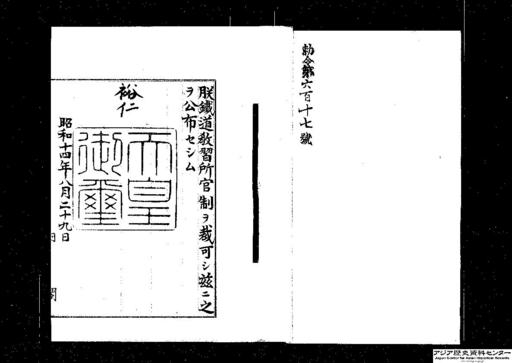 勅令第六百十七號
朕鐵道教習所官制ヲ裁可シ茲ニ之
ヲ公布セシム
裕仁
天皇
御璽
昭和十四年八月二十九日
アジア歴史資料センター
Japan Center for Asian Historical Records